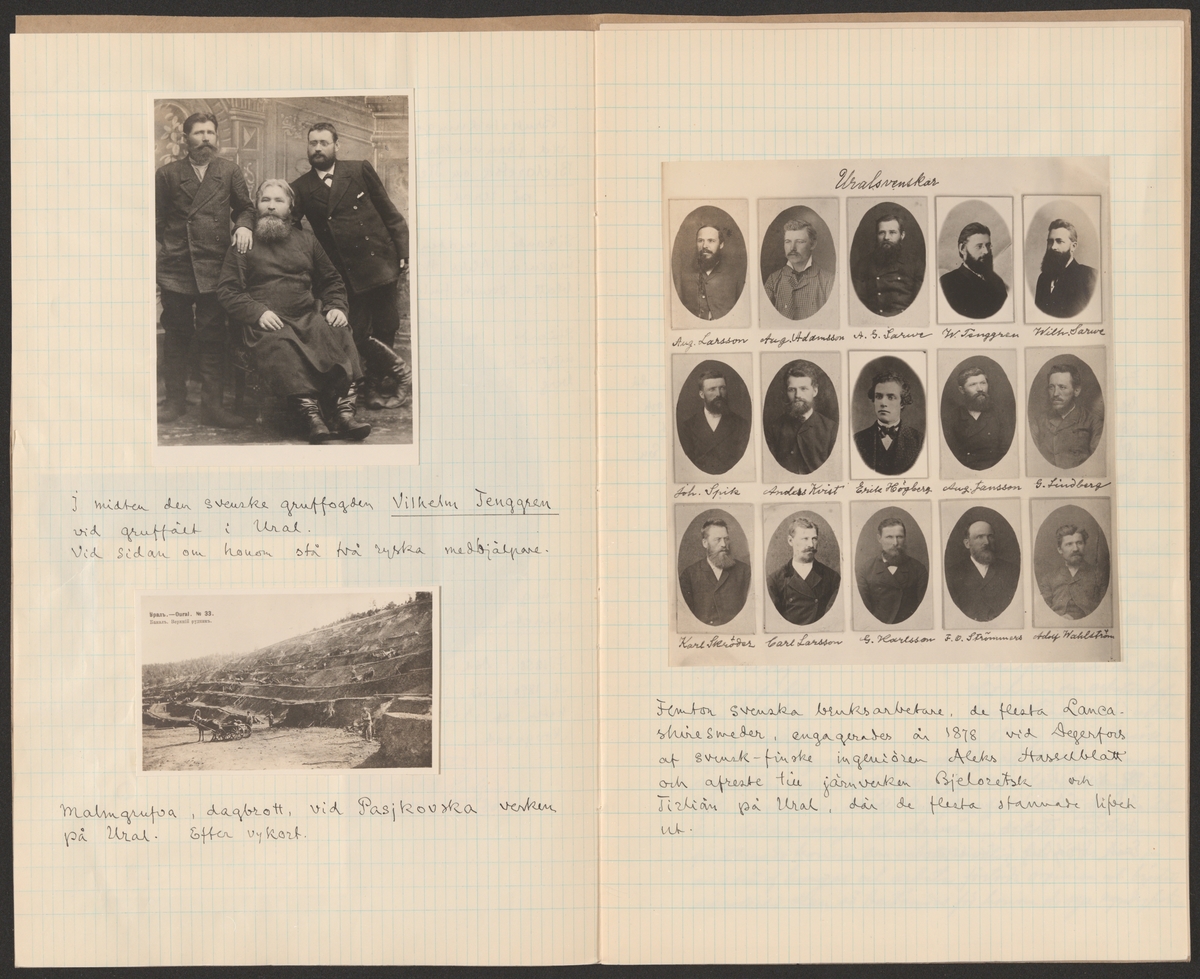 I midten den svenske gruffogden Vilhelm Tenggren
vid gruffält i Ural.
Vid sidan om honom stå två ryska medhjälpare.
Уралъ.—Oural. № 33.
Бакалъ. Верхній рудникъ.
Malmgrufva, dagbrott, vid Pasjkovska verken
på Ural. Efter vykort.
Uralsvenskar
Aug. Larsson Aug. Adamsson A. G. Sarwe W. Tenggren Wilh. Sarwe
Joh. Spik Anders Kvist Erik Högberg Aug. Jansson G. Lindberg
Karl Skröder Carl Larsson G. Karlsson F. O. Strömmers Adolf Wahlström
Femton svenska bruksarbetare, de flesta Lanca-
shiresmeder, engagerades år 1878 vid Degerfors
af svensk-finske ingeniören Aleks Hasselblatt
och afreste till järnverken Bjeloretsk och
Tirlian på Ural, där de flesta stannade lifvet
ut.